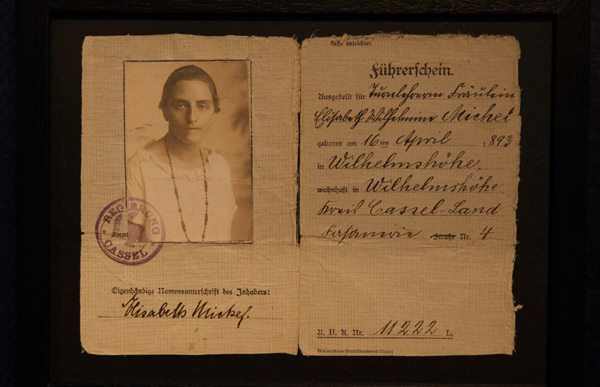 REGIERUNG
CASSEL
Eigenhändige Namensunterschrift des Inhabers:
Elisabeth Michel.
Führerschein.
Ausgestellt für Turnlehrerin Fräulein
Elisabeth Wilhelmine Michel
geboren am 16ten April 1893
in Wilhelmshöhe,
wohnhaft in Wilhelmshöhe
Kreis Cassel-Land
Fasanerie Straße Nr. 4
A. U. K. Nr. 11222 L.